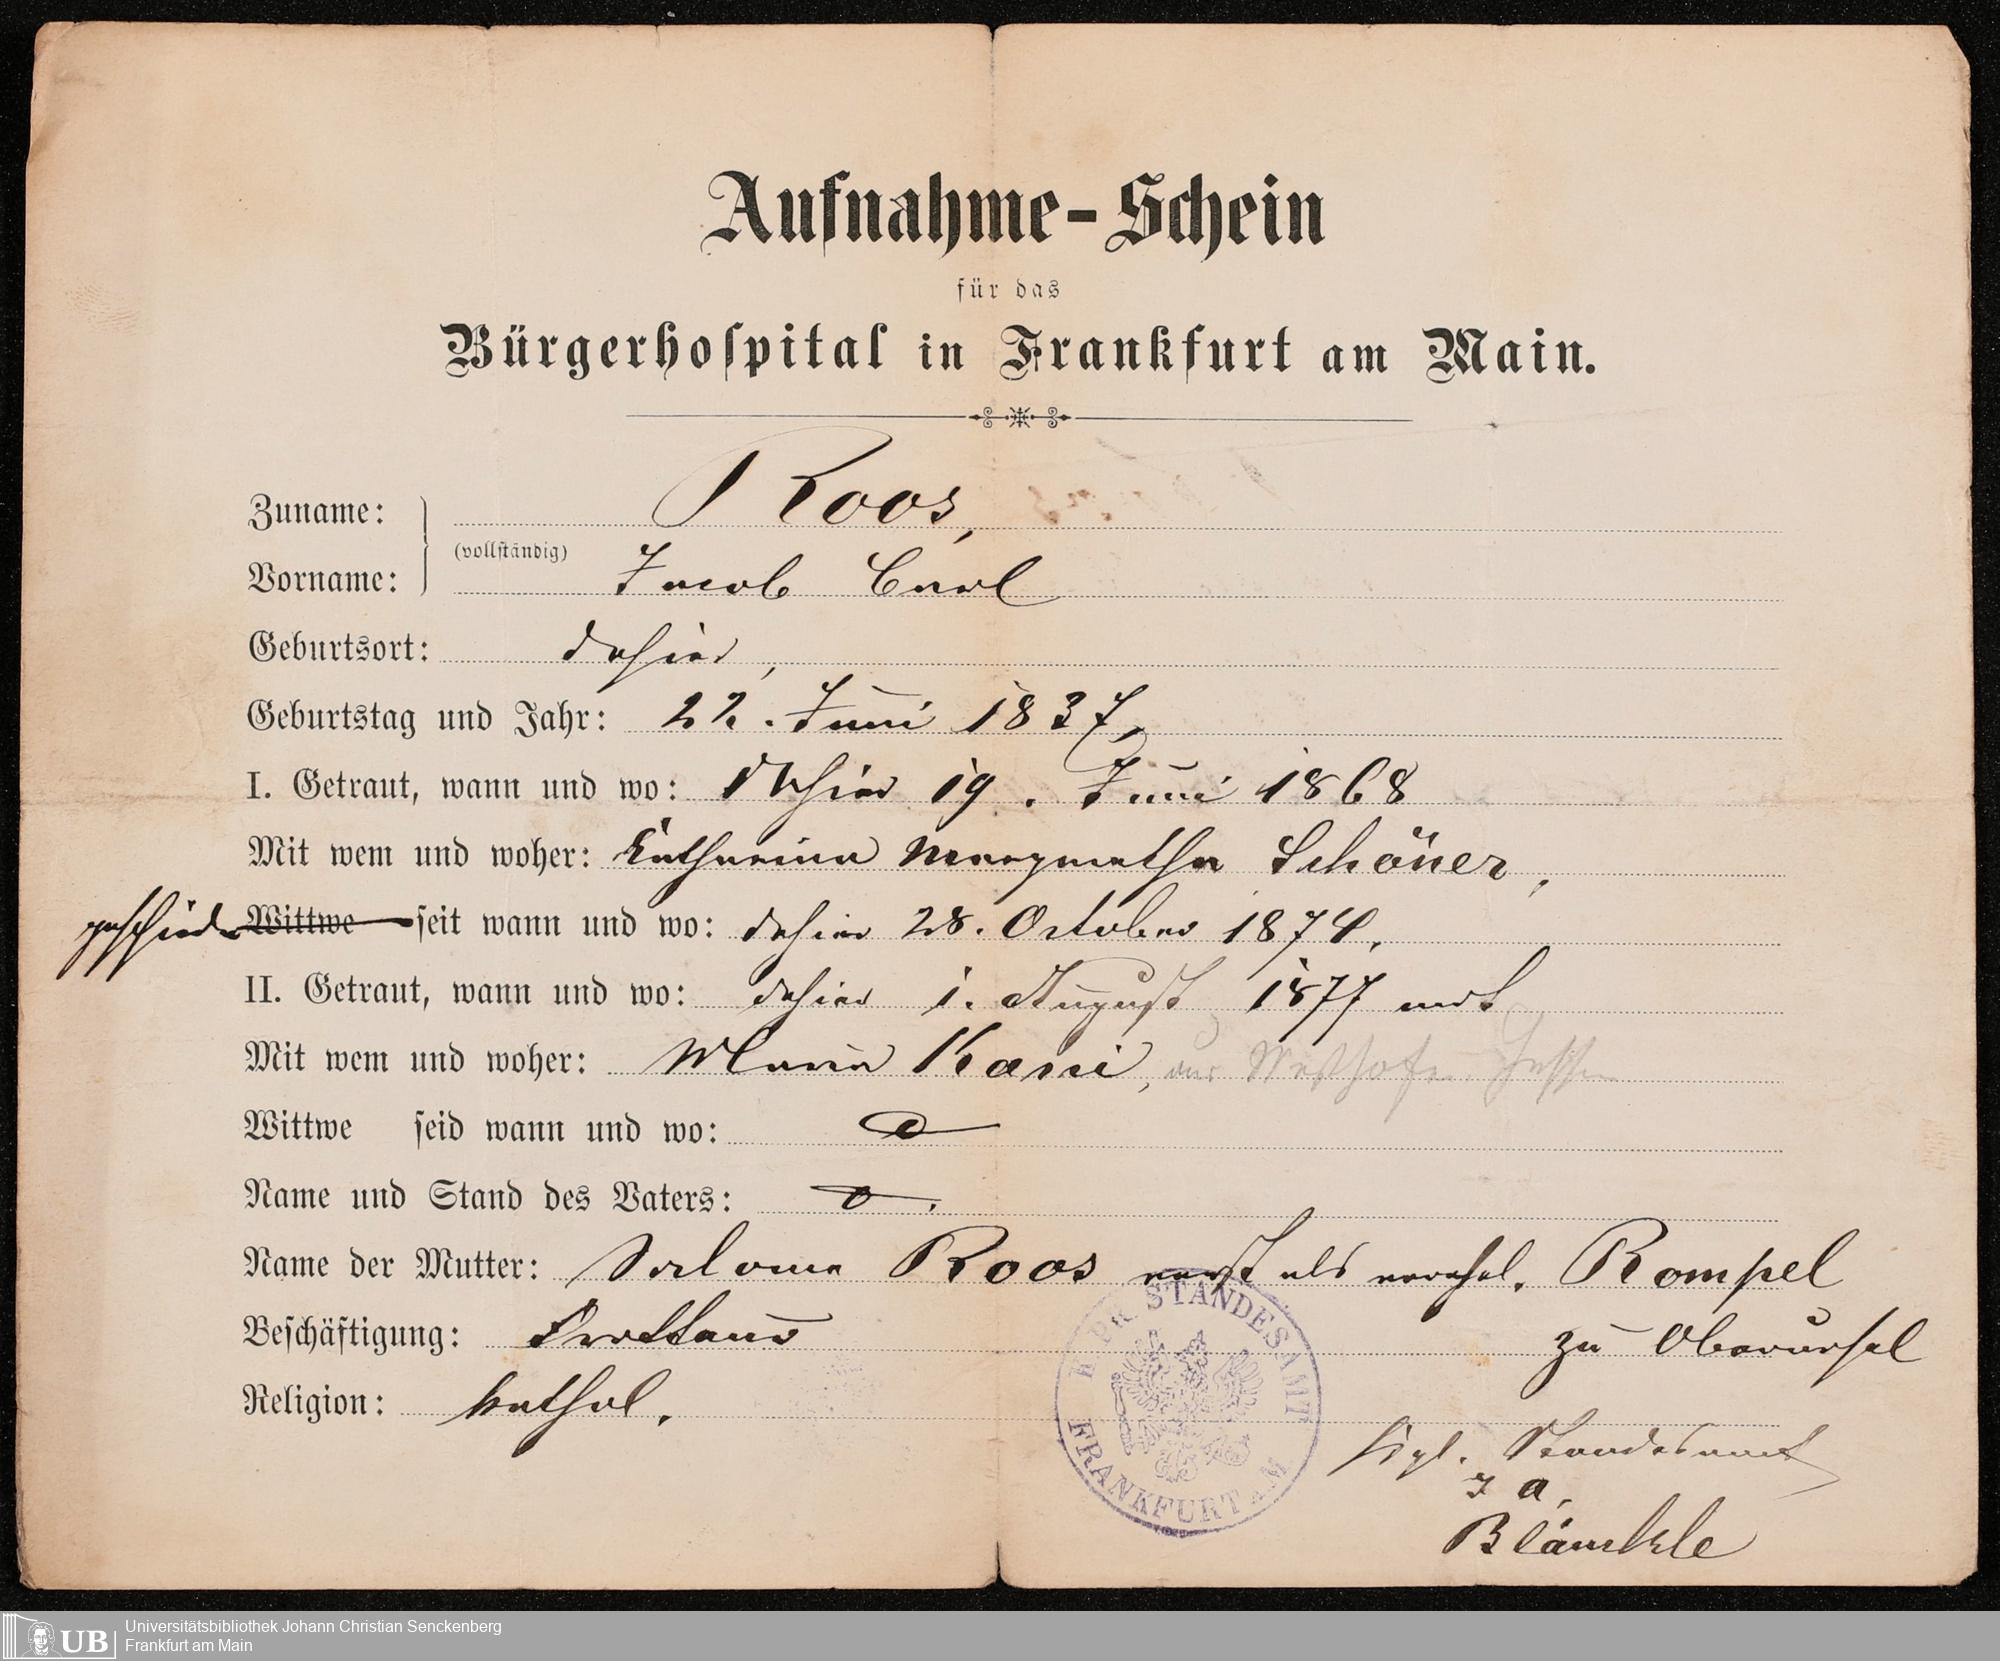 Aufnahme-Schein
für das
Bürgerhospital in Frankfurt am Main.
Zuname: Roos,
(vollständig)
Vorname: Jacob Carl
Geburtsort: dahier,
Geburtstag und Jahr: 22. Juni 1837,
I. Getraut, wann und wo: dahier 19. Juni 1868
Mit wem und woher: Katharina Margaretha Schöner,
geschieden Wittwe seit wann und wo: dahier 28. October 1874.
II. Getraut, wann und wo: dahier 1. August 1877 mit
Mit wem und woher: Maria, aus Westhofen Hessen
Wittwe seid wann und wo:
Name und Stand des Vaters:
Name der Mutter: Salome Roos verst als verehel. Rompel
zu Oberursel
Beschäftigung:
Religion: kathol.
K. PR. STANDESAMT
FRANKFURT a/M
Kgl. Standesamt
I A,